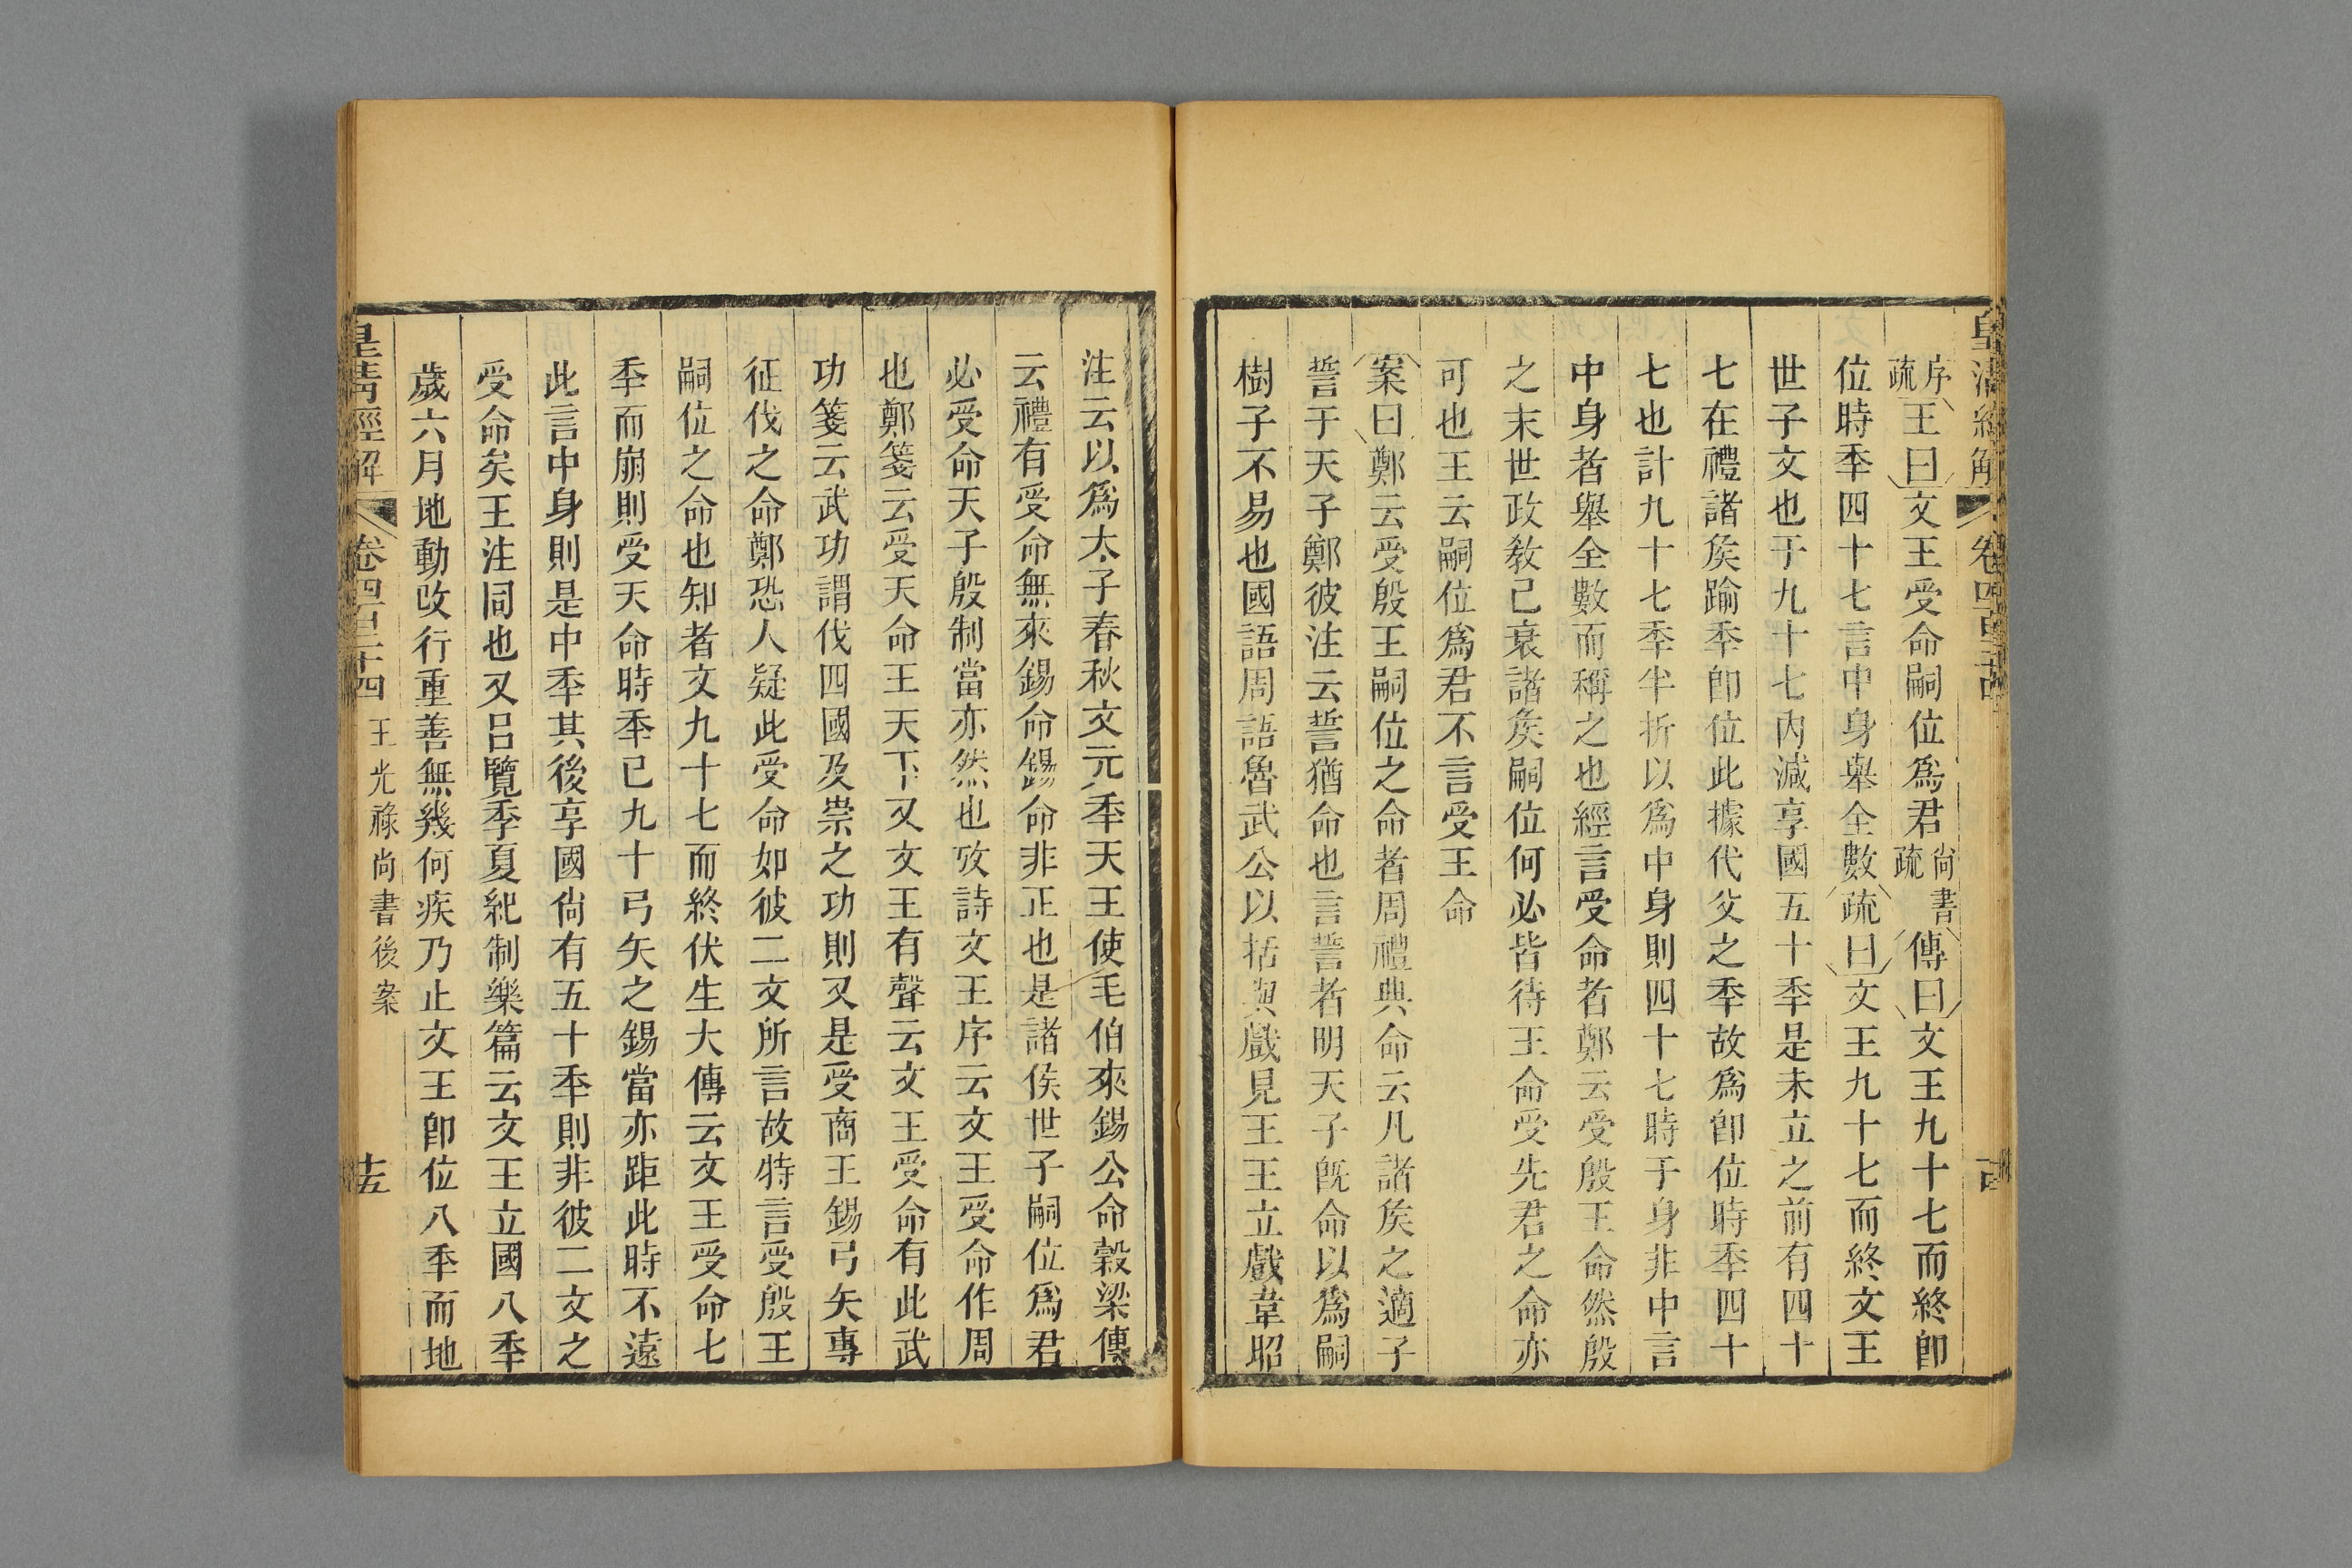 皇清經解 卷四百二十四 十四
序疏王曰文王受命嗣位爲君尚書疏傳曰文王九十七而終卽
位時秊四十七言中身舉全數疏曰文王九十七而終文王
世子文也于九十七內減享國五十秊是未立之前有四十
七在禮諸矦踰秊卽位此據代父之秊故爲卽位時秊四十
七也計九十七秊半折以爲中身則四十七時于身非中言
中身者舉全數而稱之也經言受命者鄭云受殷王命然殷
之末世政敎己衰諸矦嗣位何必皆待王命受先君之命亦
可也王云嗣位爲君不言受王命
案曰鄭云受殷王嗣位之命者周禮典命云凡諸矦之適子
誓于天子鄭彼注云誓猶命也言誓者明天子旣命以爲嗣
樹子不易也國語周語魯武公以括與戲見王王立戲韋昭
注云以爲太子春秋文元秊天王使毛伯來錫公命穀梁傳
云禮有受命無來錫命錫命非正也是諸侯世子嗣位爲君
必受命天子殷制當亦然也攷詩文王序云文王受命作周
也鄭箋云受天命王天下又文王有聲云文王受命有此武
功箋云武功謂伐四國及崇之功則又是受商王錫弓矢專
征伐之命鄭恐人疑此受命如彼二文所言故特言受殷王
嗣位之命也知者文九十七而終伏生大傳云文王受命七
秊而崩則受天命時秊已九十弓矢之錫當亦距此時不遠
此言中身則是中秊其後享國尙有五十秊則非彼二文之
受命矣王注同也又呂覽季夏紀制樂篇云文王立國八秊
歲六月地動改行重善無幾何疾乃止文王卽位八秊而地
皇清經解 卷四百二十四 王光祿尚書後案 十五